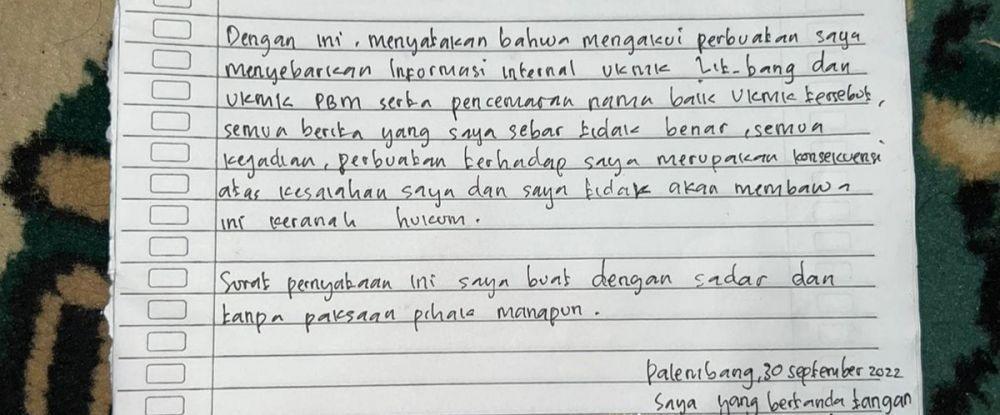 Dengan ini, menyatakan bahwa mengakui perbuatan saya
menyebarkan Informasi internal UKMK Lit-bang dan
UKMK PBM serta pencemaran nama baik UKMK tersebut,
semua berita yang saya sebar tidak benar, semua
kejadian, perbuatan terhadap saya merupakan konsekuensi
atas kesalahan saya dan saya tidak akan membawa
ini keranah hukum.
Surat pernyataan ini saya buat dengan sadar dan
tanpa paksaan pihak manapun.
Palembang, 30 september 2022
Saya yang bertanda tangan